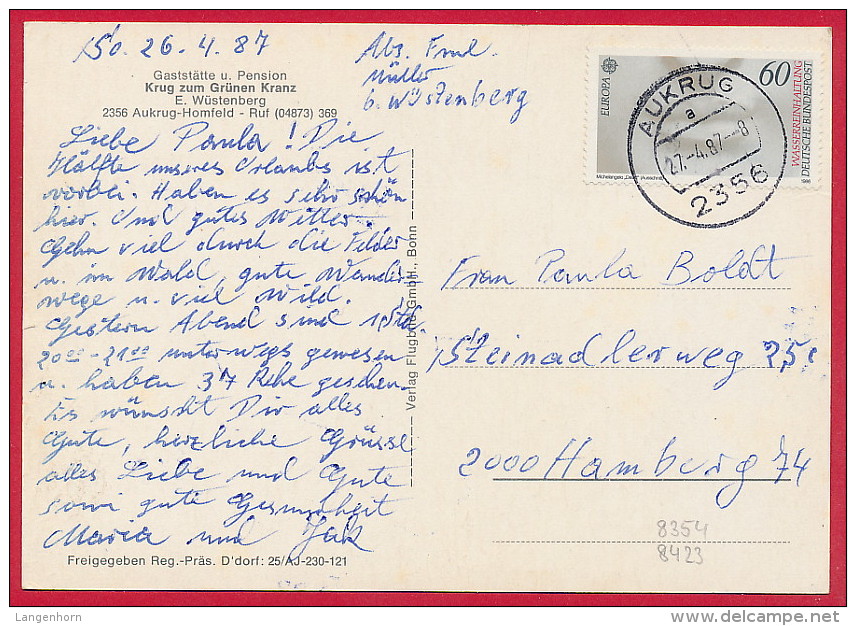 So. 26.4.87
Gaststätte u. Pension
Krug zum Grünen Kranz
E. Wüstenberg
2356 Aukrug-Homfeld - Ruf (04873) 369
Liebe Paula! Die
Hälfte unseres Urlaubs ist
vorbei. Haben es sehr schön
hier und gutes Wetter.
Gehn viel durch die Felder
u. im Wald, gute Wander-
wege u. viel Wild.
Gestern Abend sind 1 Std.
20°° - 21°° unterwegs gewesen
u. haben 37 Rehe gesehen.
Es wünscht Dir alles
Gute, herzliche Grüsse
alles Liebe und Gute
sowi gute Gesundheit
Maria und
Freigegeben Reg.-Präs. D'dorf: 25/AJ-230-121
Verlag Flugbild GmbH., Bonn
Abs. Fml.
Müller
b. Wüstenberg
EUROPA
60
WASSERREINHALTUNG
DEUTSCHE BUNDESPOST
Michelangelo „David“ (Ausschnitt)
1986
AUKRUG
a
27.-4.87.-8
2356
Frau Paula Boldt
Steinadlerweg 25
2000 Hamburg 74
8354
8423
Langenhorn
delcampe.net